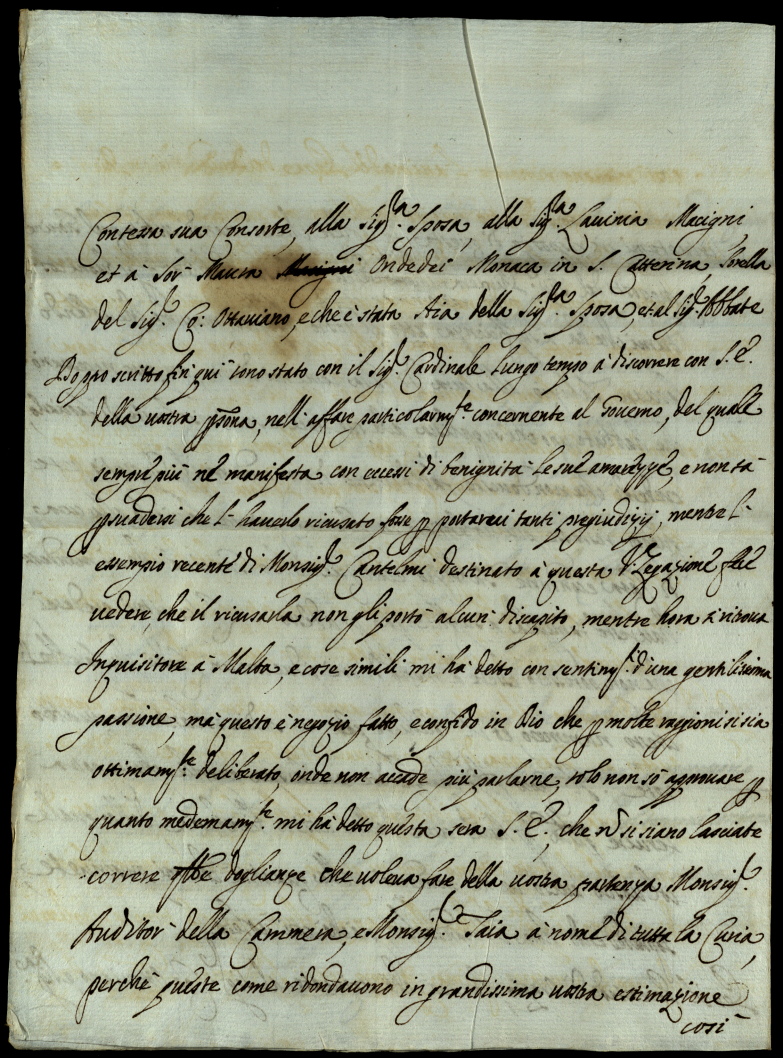 Contessa sua Consorte, alla Sig.ra Sposa, alla Sig.ra Lavinia Macigni,
et à Sor Maura Ondedei Monaca in S. Catterina, Sorella
del Sig.r Co: Ottaviano, e che è stata Aia della Sig.ra Sposa, et al Sig.r Abbate
Doppo scritto fin qui sono stato con il Sig.r Cardinale lungo tempo à discorrere con S. E.
della vostra p̄sona, nell'affare particolarm.te concernente al Governo, del quale
sempre più ne manifesta con eccessi di benignità le sue amarezze, e non sà
p̄suadersi che l'haverlo ricusato fosse p̄ portarvi tanti pregiudizij, mentre l'
essempio recente di Monsig.r Cantelmi destinato à questa V. Legazione fece
vedere, che il ricusarla non gli portò alcun discapito, mentre hora si ritrova
Inquisitore à Malta, e cose simili mi hà detto con sentim.ti d'una gentilissima
passione, mà questo è negozio fatto, e confido in Dio che p̄ molte raggioni si sia
ottimam.te deliberato, onde non accade più parlarne, solo non sò approvare p̄
quanto medemam.te mi hà detto questa sera S. E., che nō si siano lasciate
correre doglianze che voleva fare della vostra partenza Monsig.r
Auditor della Cammera, e Monsig.r Taia à nome di tutta la Curia,
perche queste come ridondavono in grandissima vostra estimazione
così